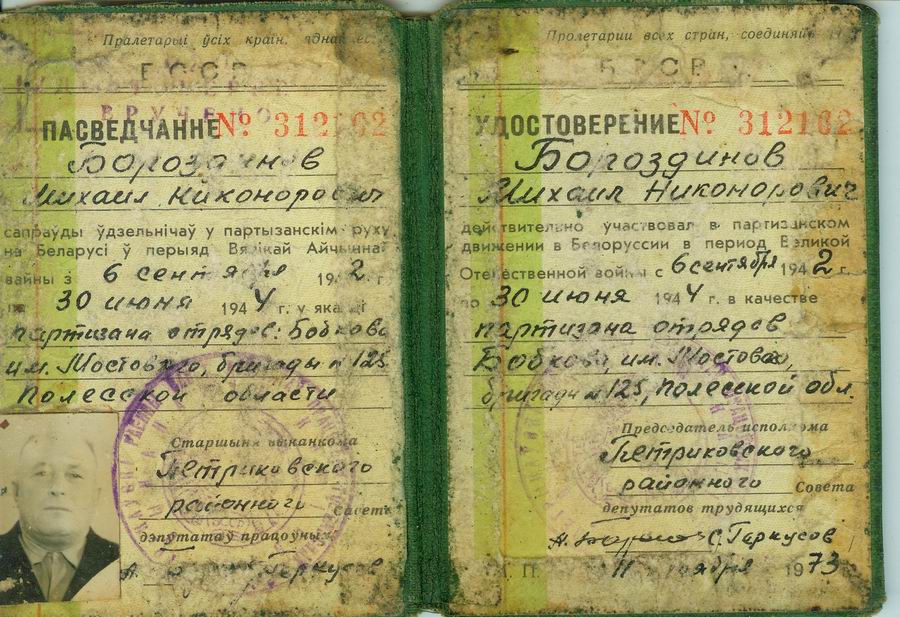 Пралетарыі ўсіх краін,
БССР
ВРУЧЕНО
ПАСВЕДЧАННЕ № 312162
Бороздинов
Михаил Никонорович
сапраўды ўдзельнічаў у партызанскім руху
на Беларусі ў перыяд Вялікай Айчыннай
вайны з 6 сентября 1942 г.
па 30 июня 1944 г. у якасці
партизана отрядов: Бобкова
им. Мостового, бригады № 125
Полесской области
Старшыня выканкома
Петриковского
районного Савета
дэпутатаў працоўных
Гаркусов
Пролетарии всех стран, соединяйтесь
БССР
УДОСТОВЕРЕНИЕ № 312162
Бороздинов
Михаил Никонорович
действительно участвовал в партизанском
движении в Белоруссии в период Великой
Отечественной войны с 6 сентября 1942 г.
по 30 июня 1944 г. в качестве
партизана отрядов
Бобкова, им. Мостового,
бригады № 125, Полесской обл.
Председатель исполкома
Петриковского
районного Совета
депутатов трудящихся
С. Гаркусов
М. П. 11 ноября 1973